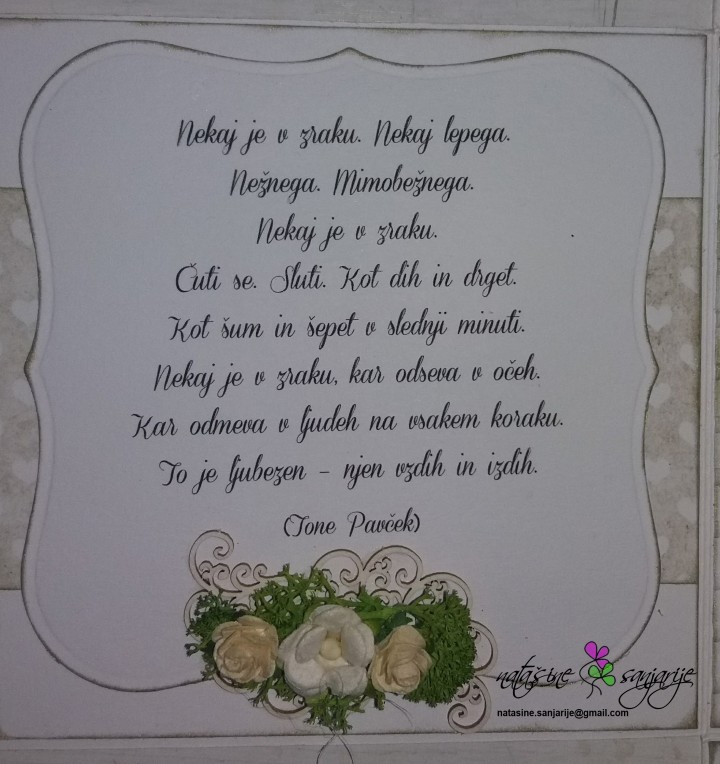 Nekaj je v zraku. Nekaj lepega.
Nežnega. Mimobežnega.
Nekaj je v zraku.
Čuti se. Sluti. Kot dih in drget.
Kot šum in šepet v slednji minuti.
Nekaj je v zraku, kar odseva v očeh.
Kar odmeva v ljudeh na vsakem koraku.
To je ljubezen - njen vzdih in izdih.
(Tone Pavček)
natašine sanjarije
natasine.sanjarije@gmail.com